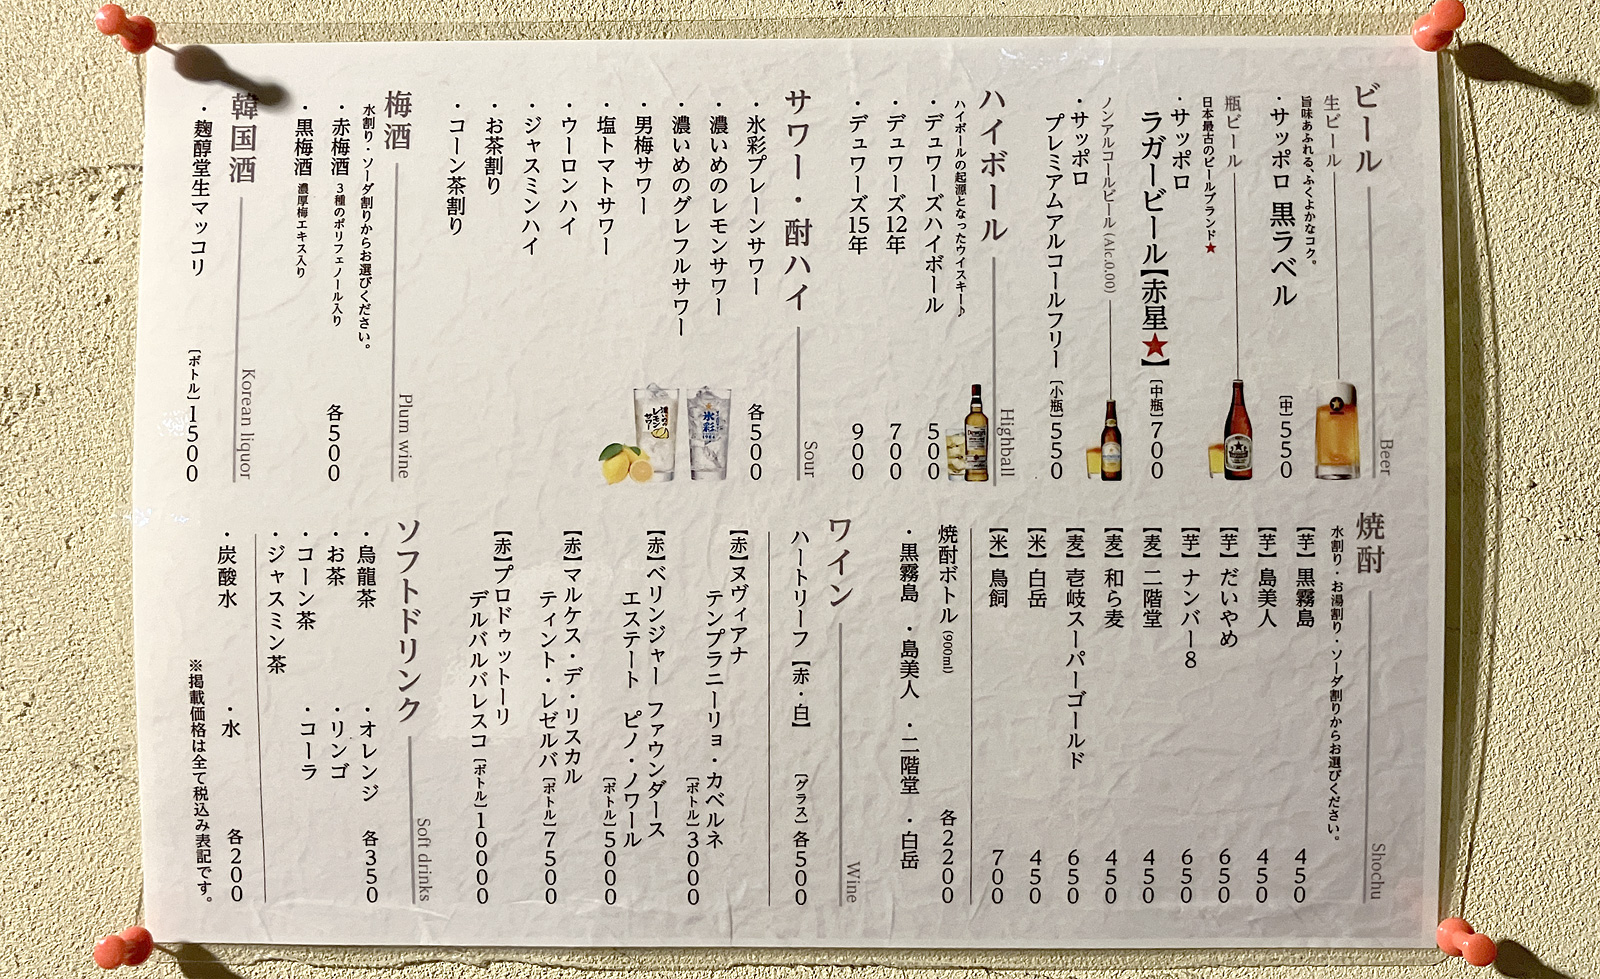 ビール
Beer
生ビール
旨味あふれる、ふくよかなコク。
・サッポロ 黒ラベル [中] 550
瓶ビール
日本最古のビールブランド★
・サッポロ
ラガービール【赤星★】 [中瓶] 700
ノンアルコールビール (Alc.0.00)
・サッポロ
プレミアムアルコールフリー [小瓶] 550
ハイボール
Highball
ハイボールの起源となったウイスキー♪
・デュワーズハイボール 500
・デュワーズ12年 700
・デュワーズ15年 900
サワー・酎ハイ
Sour
・氷彩プレーンサワー 各500
・濃いめのレモンサワー
・濃いめのグレフルサワー
・男梅サワー
・塩トマトサワー
・ウーロンハイ
・ジャスミンハイ
・お茶割り
・コーン茶割り
氷彩
濃いめの
レモン
サワー
梅酒
Plum wine
水割り・ソーダ割りからお選びください。
・赤梅酒 3種のポリフェノール入り 各500
・黒梅酒 濃厚梅エキス入り
韓国酒
Korean liquor
・麹醇堂生マッコリ [ボトル] 1500
焼酎
Shochu
水割り・お湯割り・ソーダ割りからお選びください。
【芋】黒霧島 450
【芋】島美人 450
【芋】だいやめ 650
【芋】ナンバー8 650
【麦】二階堂 450
【麦】和ら麦 450
【麦】壱岐スーパーゴールド 650
【米】白岳 450
【米】鳥飼 700
焼酎ボトル (900ml) 各2200
・黒霧島 ・島美人 ・二階堂 ・白岳
ワイン
Wine
ハートリーフ【赤・白】 [グラス] 各500
【赤】ヌヴィアナ
テンプラニーリョ・カベルネ
[ボトル] 3000
【赤】ベリンジャー ファウンダース
エステート ピノ・ノワール
[ボトル] 5000
【赤】マルケス・デ・リスカル
ティント・レゼルバ [ボトル] 7500
【赤】プロドゥットーリ
デルバルバレスコ [ボトル] 10000
ソフトドリンク
Soft drinks
・烏龍茶 ・オレンジ 各350
・お茶 ・リンゴ
・コーン茶 ・コーラ
・ジャスミン茶
・炭酸水 ・水 各200
※掲載価格は全て税込み表記です。